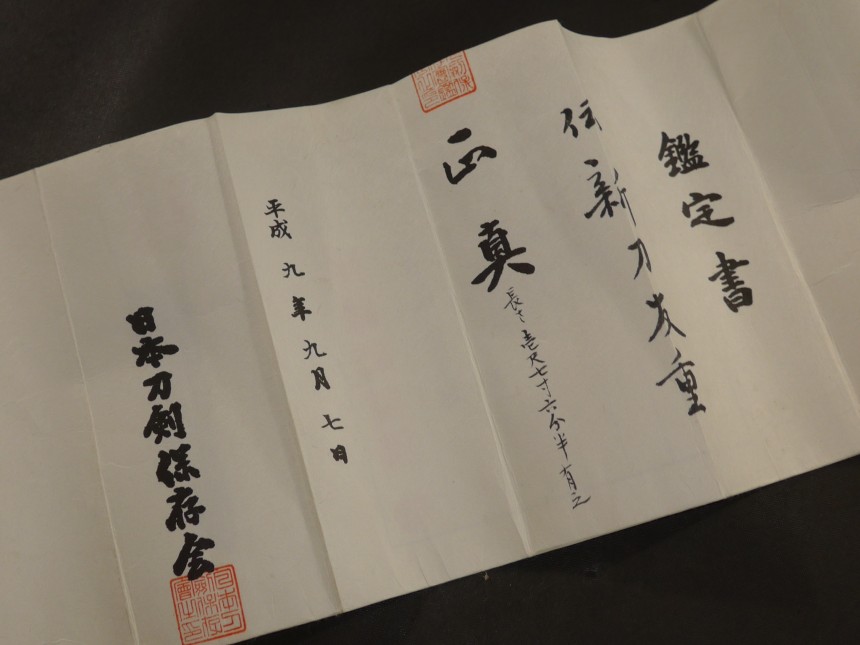 鑑定書
伝新刀友重
正真
長さ壱尺七寸六分半有之
平成九年九月七日
日本刀剣保存会